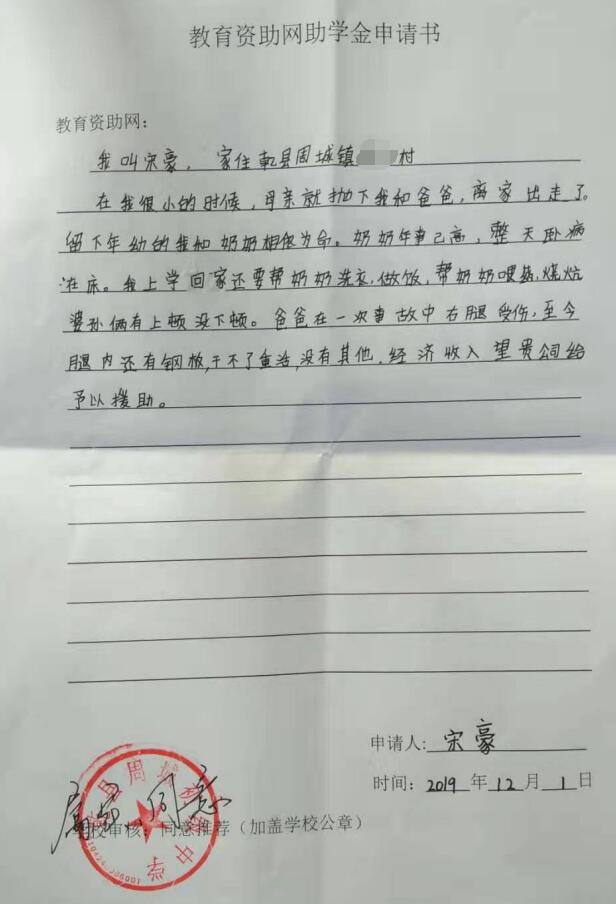 教育资助网助学金申请书
教育资助网：
我叫宋豪，家住乾县周城镇 村
在我很小的时候，母亲就抛下我和爸爸，离家出走了
留下年幼的我和奶奶相依为命。奶奶年事已高，整天卧病
在床。我上学回家还要帮奶奶洗衣，做饭，帮奶奶喂药，烧炕
婆孙俩有上顿没下顿。爸爸在一次事故中右腿受伤，至今
腿内还有钢板，干不了重活，没有其他，经济收入望贵公司给
予以援助。
申请人：宋豪
时间：2019年12月1日
属实 同意
学校审核：同意推荐（加盖学校公章）
乾县周城 中学